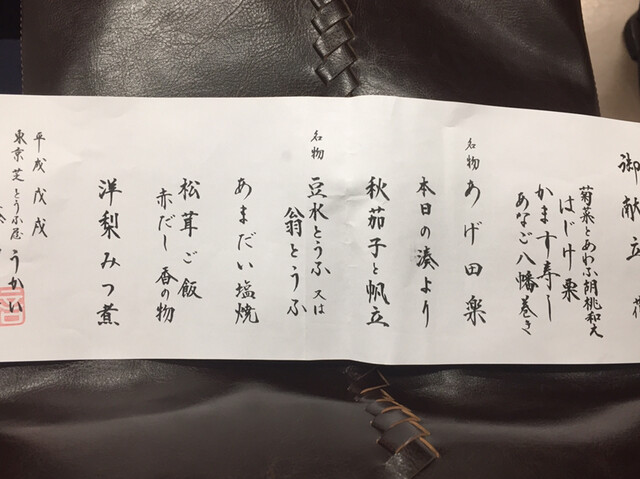 御献立
菊菜とあわふ胡桃和え
はじけ栗
かます寿し
あなご八幡巻き
名物 あげ田楽
本日の湊より
秋茄子と帆立
名物 豆水とうふ 又は
翁とうふ
あまだい塩焼
松茸ご飯
赤だし 香の物
洋梨みつ煮
平成戊戌
東京 芝とうふ屋うかい